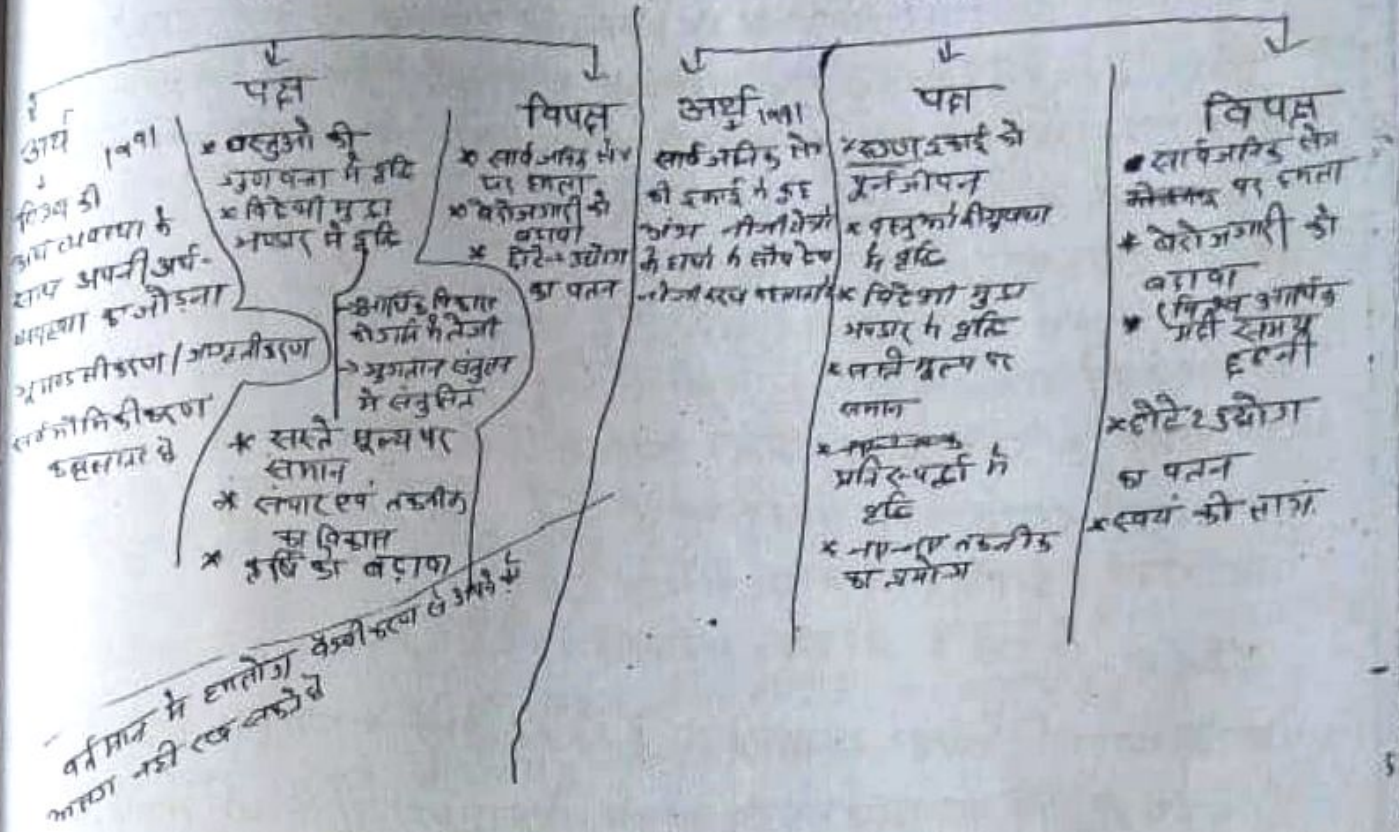 अर्थ 1991
विश्व की
अर्थव्यवस्था के
साथ अपनी अर्थ-
व्यवस्था का जोड़ना
भूमण्डलीकरण /
सार्वभौमिकीकरण
कहलाता है
पक्ष
* वस्तुओ की
गुणवत्ता में वृद्धि
* विदेशी मुद्रा
भण्डार में वृद्धि
→ आर्थिक विकास
की में तेजी
→ भुगतान संतुलन
में संतुलित
* सस्ते मूल्य पर
समान
* संचार एवं तकनीक
का विकास
* कृषि को बढ़ावा
विपक्ष
* सार्वजनिक क्षेत्र
पर हमला
* बेरोजगारी को
बढ़ावा
* छोटे-2 उद्योग
का पतन
वर्तमान में हमलोग वैश्वीकरण से अपने को
अलग नहीं रख सकते है
अर्थ 1991
सार्वजनिक क्षेत्र
की इकाई के कुछ
अंश नीजी क्षेत्रो
के हाथो में सौप देना
नीजीकरण कहलाता है
पक्ष
* रूग्ण इकाई को
पुर्नजीवन
* वस्तुओ की गुणवत्ता
में वृद्धि
* विदेशी मुद्रा
भण्डार में वृद्धि
* सस्ते मूल्य पर
समान
*
प्रतिस्पर्द्धा में
वृद्धि
* नए-नए तकनीक
का प्रयोग
विपक्ष
* सार्वजनिक क्षेत्र
पर हमला
* बेरोजगारी को
बढ़ावा
* विश्व आर्थिक
मंदी समय
छटनी
* छोटे 2 उद्योग
का पतन
* स्वयं को लाभ